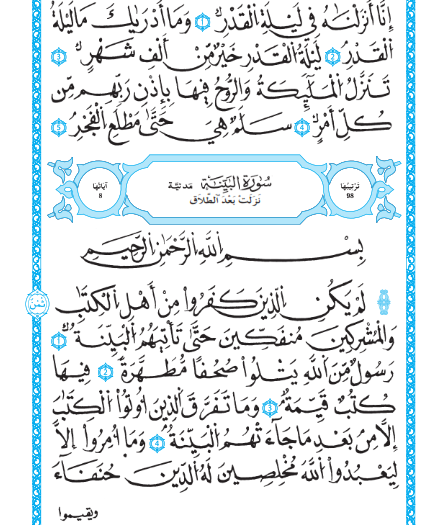 إِنَّا أَنزَلْنَٰهُ فِي لَيْلَةِ الْقَدْرِ 1 وَمَا أَدْرَىٰكَ مَا لَيْلَةُ
الْقَدْرِ 2 لَيْلَةُ الْقَدْرِ خَيْرٌ مِّنْ أَلْفِ شَهْرٍ 3
تَنَزَّلُ الْمَلَٰٓئِكَةُ وَالرُّوحُ فِيهَا بِإِذْنِ رَبِّهِم مِّن
كُلِّ أَمْرٍ 4 سَلَٰمٌ هِيَ حَتَّىٰ مَطْلَعِ الْفَجْرِ 5
ترتيبها 98
سُورَةُ الْبَيِّنَة مدنية
نزلت بعد الطلاق
آياتها 8
بِسْمِ اللَّهِ الرَّحْمَٰنِ الرَّحِيمِ
لَمْ يَكُنِ الَّذِينَ كَفَرُوا مِنْ أَهْلِ الْكِتَٰبِ
وَالْمُشْرِكِينَ مُنفَكِّينَ حَتَّىٰ تَأْتِيَهُمُ الْبَيِّنَةُ 1
رَسُولٌ مِّنَ اللَّهِ يَتْلُوا صُحُفًا مُّطَهَّرَةً 2 فِيهَا
كُتُبٌ قَيِّمَةٌ 3 وَمَا تَفَرَّقَ الَّذِينَ أُوتُوا الْكِتَٰبَ
إِلَّا مِن بَعْدِ مَا جَاءَتْهُمُ الْبَيِّنَةُ 4 وَمَا أُمِرُوا إِلَّا
لِيَعْبُدُوا اللَّهَ مُخْلِصِينَ لَهُ الدِّينَ حُنَفَاءَ
ويقيموا